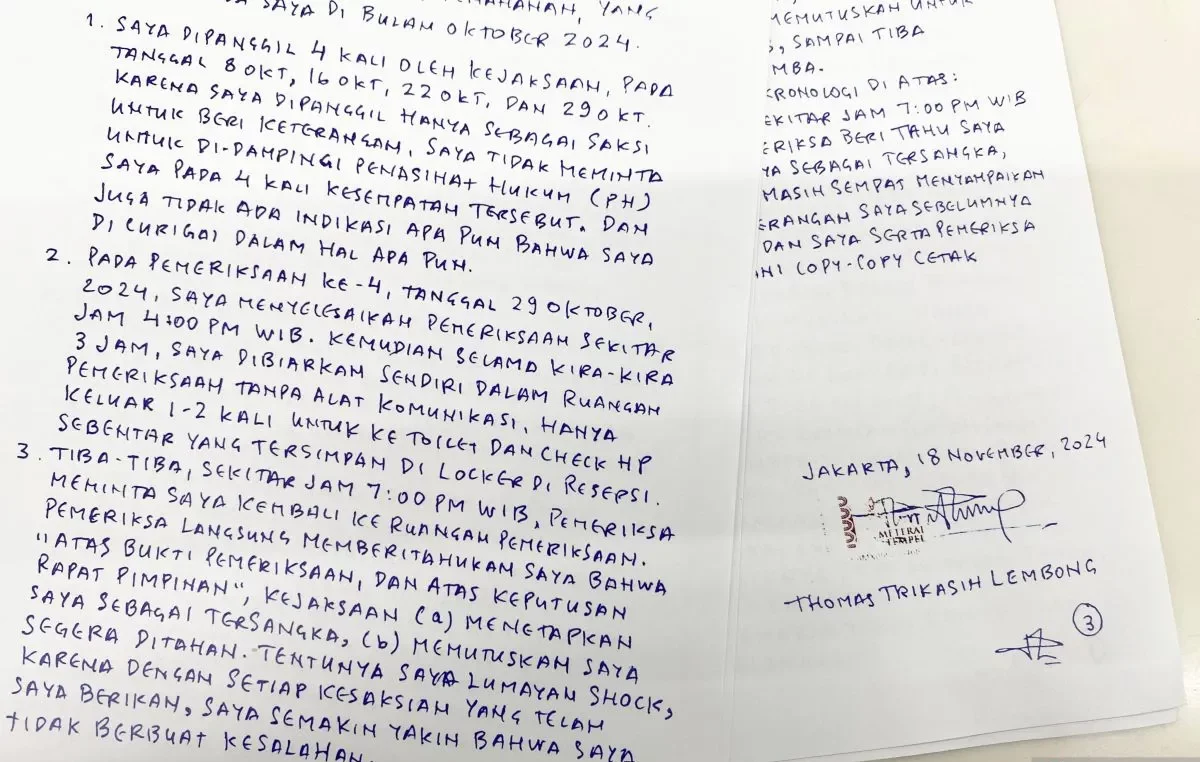 SAYA DI BULAN OKTOBER 2024.
1. SAYA DIPANGGIL 4 KALI OLEH KEJAKSAAN, PADA
TANGGAL 8 OKT, 16 OKT, 22 OKT, DAN 29 OKT.
KARENA SAYA DIPANGGIL HANYA SEBAGAI SAKSI
UNTUK BERI KETERANGAN, SAYA TIDAK MEMINTA
UNTUK DI-DAMPINGI PENASIHAT HUKUM (PH)
SAYA PADA 4 KALI KESEMPATAN TERSEBUT. DAN
JUGA TIDAK ADA INDIKASI APA PUN BAHWA SAYA
DI CURIGAI DALAM HAL APA PUN.
2. PADA PEMERIKSAAN KE-4, TANGGAL 29 OKTOBER,
2024, SAYA MENYELESAIKAN PEMERIKSAAN SEKITAR
JAM 4:00 PM WIB. KEMUDIAN SELAMA KIRA-KIRA
3 JAM, SAYA DIBIARKAN SENDIRI DALAM RUANGAN
PEMERIKSAAN TANPA ALAT KOMUNIKASI, HANYA
KELUAR 1-2 KALI UNTUK KE TOILET DAN CHECK HP
SEBENTAR YANG TERSIMPAN DI LOCKER DI RESEPSI.
3. TIBA-TIBA, SEKITAR JAM 7:00 PM WIB, PEMERIKSA
MEMINTA SAYA KEMBALI KE RUANGAN PEMERIKSAAN.
PEMERIKSA LANGSUNG MEMBERITAHUKAN SAYA BAHWA
"ATAS BUKTI PEMERIKSAAN, DAN ATAS KEPUTUSAN
RAPAT PIMPINAN", KEJAKSAAN (a) MENETAPKAN
SAYA SEBAGAI TERSANGKA, (b) MEMUTUSKAN SAYA
SEGERA DITAHAN. TENTUNYA SAYA LUMAYAN SHOCK,
KARENA DENGAN SETIAP KESAKSIAN YANG TELAH
SAYA BERIKAN, SAYA SEMAKIN YAKIN BAHWA SAYA
TIDAK BERBUAT KESALAHAN.
MEMUTUSKAN UNTUK
, SAMPAI TIBA
MBA.
KRONOLOGI DI ATAS:
EKITAR JAM 7:00 PM WIB
ERIKSA BERI TAHU SAYA
YA SEBAGAI TERSANGKA,
MASIH SEMPAT MENYAMPAIKAN
ERANGAN SAYA SEBELUMNYA
DAN SAYA SERTA PEMERIKSA
NI COPY-COPY CETAK
JAKARTA, 18 NOVEMBER, 2024
METERAI
TEMPEL
THOMAS TRIKASIH LEMBONG
3